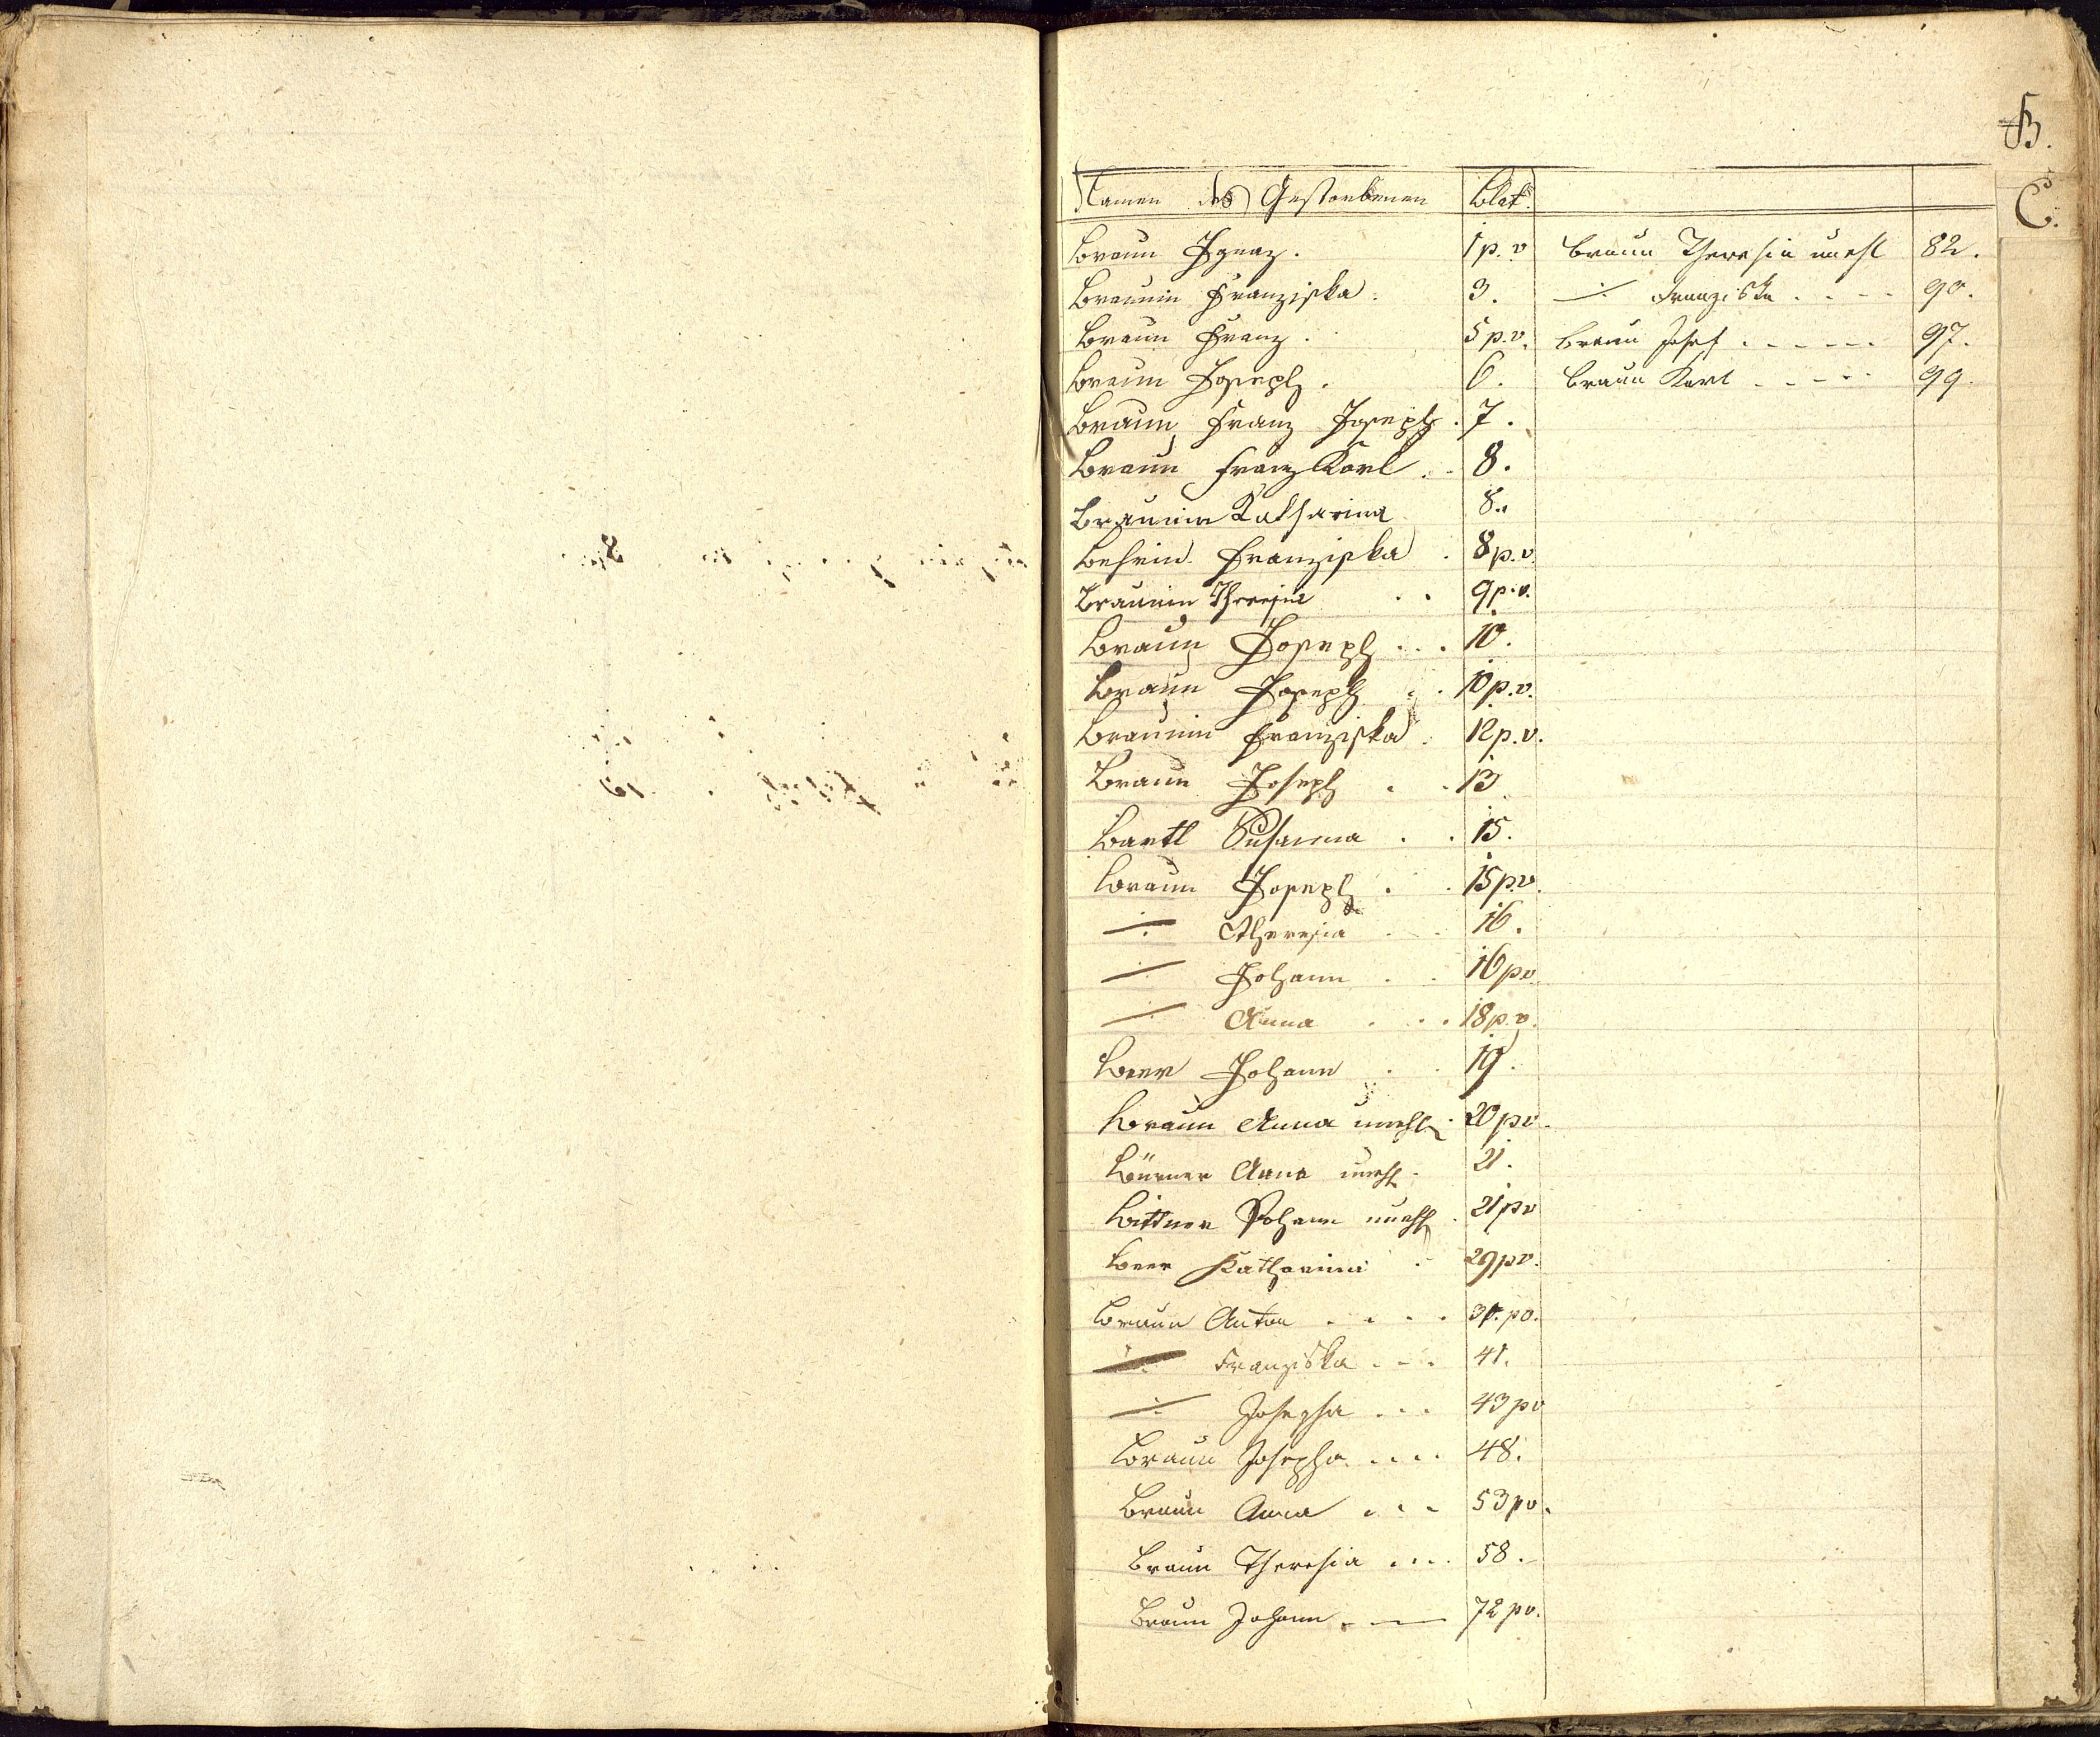 B.
C.
Namen des Gestorbenen Blat.
Braun Ignaz. 1 p. v
Braunin Franziska. 3.
Braun Franz. 5 p. v.
Braun Joseph. 6.
Braun Franz Joseph. 7.
Braun Franz Karl . . 8.
Braunin Katharina 8.
Franziska . 8 p. v.
Braunin Theresia . . 9 p. v.
Braun Joseph . . . 10.
Braun Joseph . . 10 p. v.
Braunin Franziska . 12 p. v.
Braun Joseph . . 13
Bartl Susanna . . 15.
Braun Joseph . . 15 p. v.
-/- Theresia . . 16.
-/- Johann . . 16 p v
-/- Anna . . . 18 p. v.
Beer Johann . . 19.
Braun Anna unehl. 20 p v.
Börner Anna unehl. 21.
Bittner Johann unehl. 21 p v
Beer Katharina . 29 p v.
Braun Anton . . . . p v.
-/- Franziska . . . 41.
-/- Josepha . . . 43 p v
Braun Josepha . . . . 48.
Braun Anna . . . 53 p v.
Braun Theresia . . . . 58.
Braun Johann . — 72 p v.
Braun Theresia unehl 82.
-/- Franziska . . . . 90.
Braun Josef . . . . . . 97.
Braun Karl . . . . . 99.